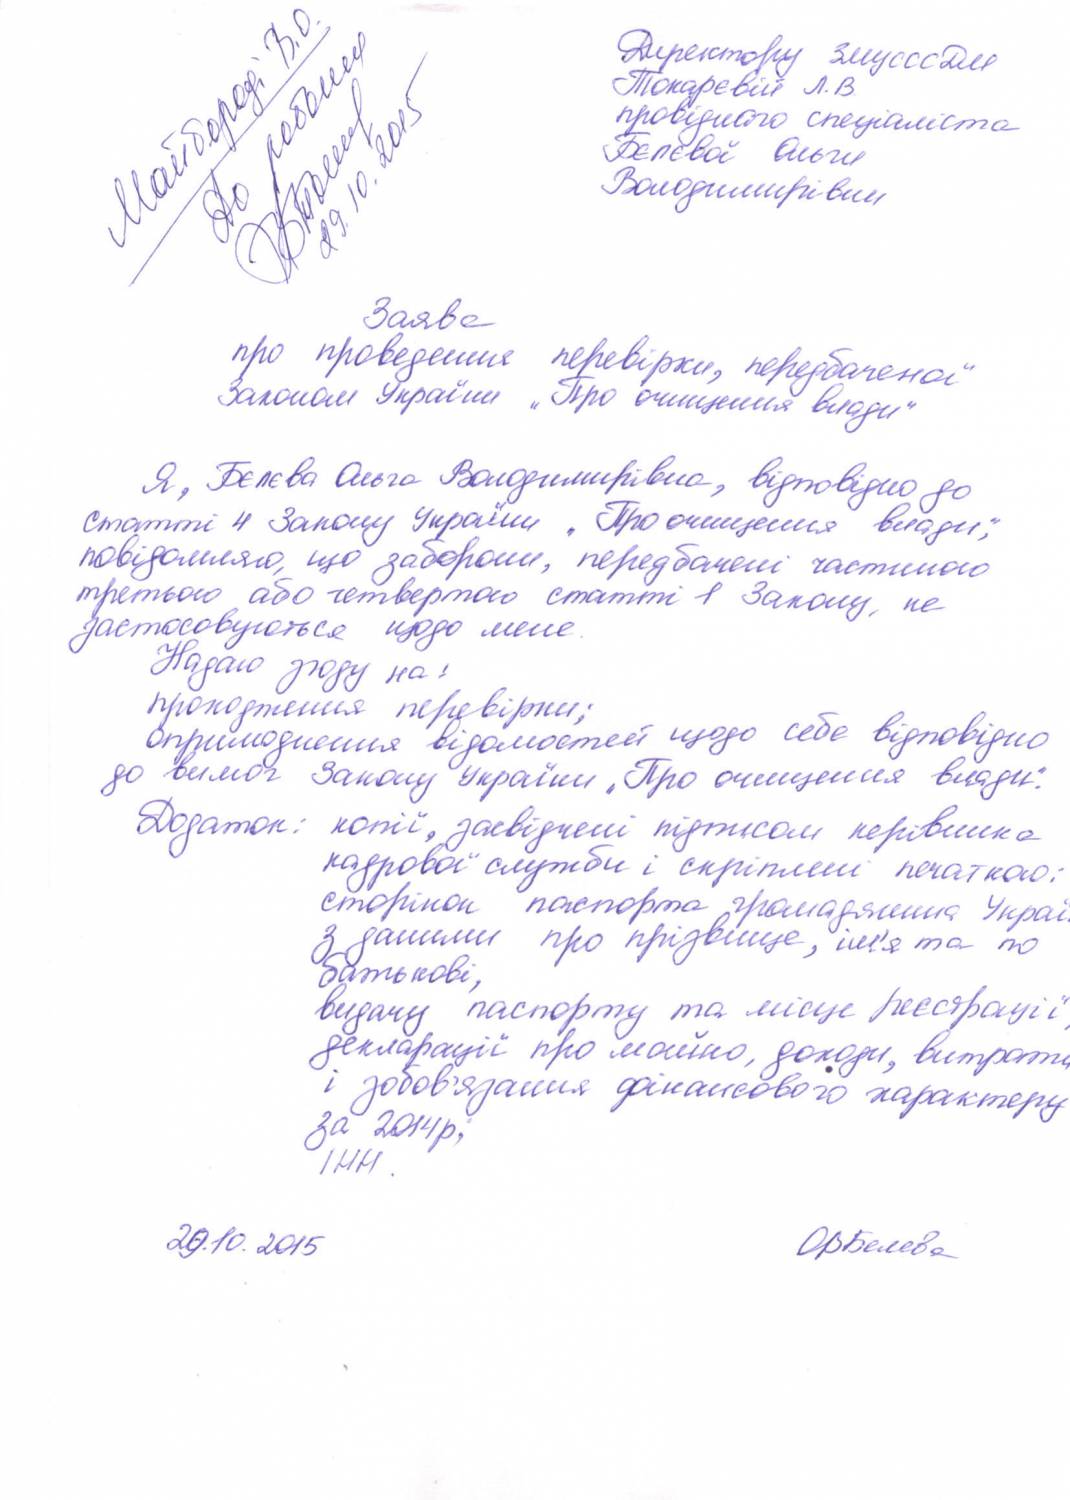 Майбороді В.О.
До роботи
29.10.2015
Директору ЗМЦСССДМ
Токарєвій Л.В.
провідного спеціаліста
Бєлєвої Ольги
Володимирівни
Заява
про проведення перевірки, передбаченої
Законом України „Про очищення влади"
Я, Бєлєва Ольга Володимирівна, відповідно до
статті 4 Закону України „Про очищення влади",
повідомляю, що заборони, передбачені частиною
третьою або четвертою статті 1 Закону, не
застосовуються щодо мене.
Надаю згоду на:
проходження перевірки;
оприлюднення відомостей щодо себе відповідно
до вимог Закону України „Про очищення влади".
Додаток: копії, засвідчені підписом керівника
кадрової служби і скріплені печаткою:
сторінок паспорта громадянина Украї
з даними про прізвище, ім'я та по
батькові,
видачу паспорту та місце реєстрації,
декларації про майно, доходи, витрати
і зобов'язання фінансового характеру
за 2014р;
ІНН.
29.10.2015 ОВБелева